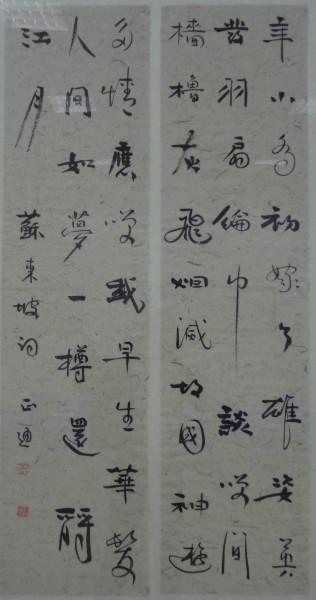 年小喬初嫁了雄姿英
發羽扇綸巾談笑間
檣櫓灰飛烟滅故國神遊
多情應笑我早生華髮
人間如夢一樽還酹
江月 蘇東坡詞